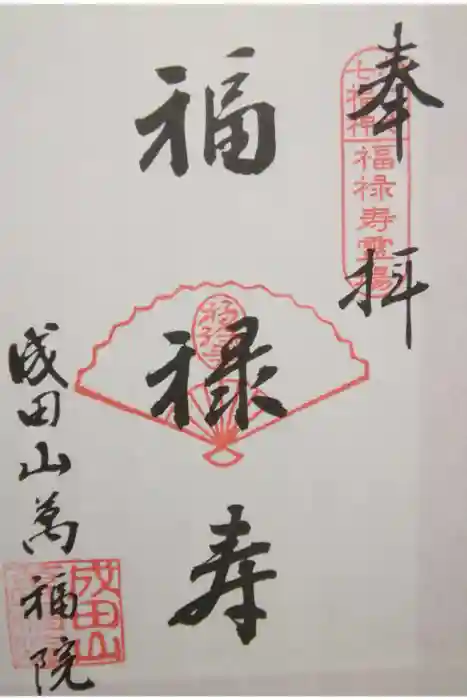 奉拝
七福神
福禄寿霊場
福禄寿
福禄寿
成田山萬福院
成田山